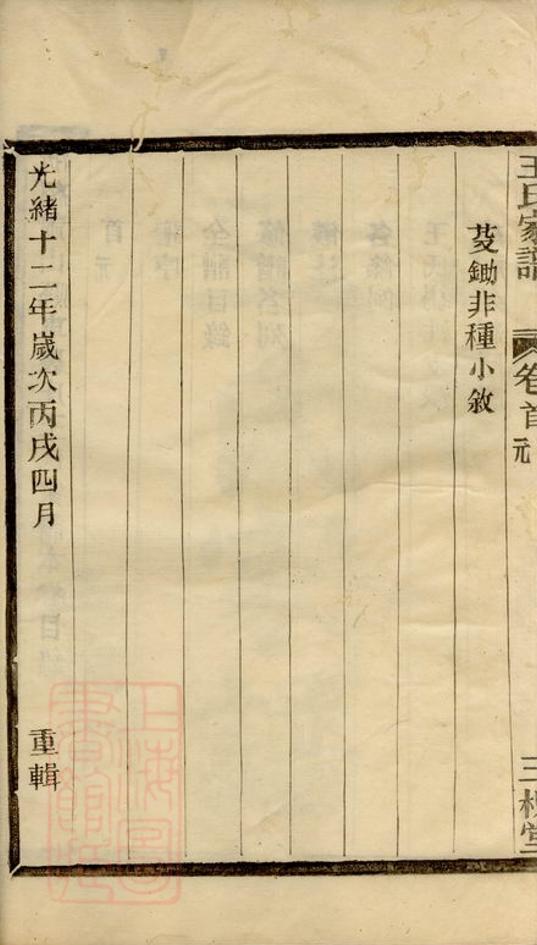 王氏家譜 卷首 元 三槐堂
芟鋤非種小敘
光緒十二年歲次丙戌四月 重輯
上海圖書館藏